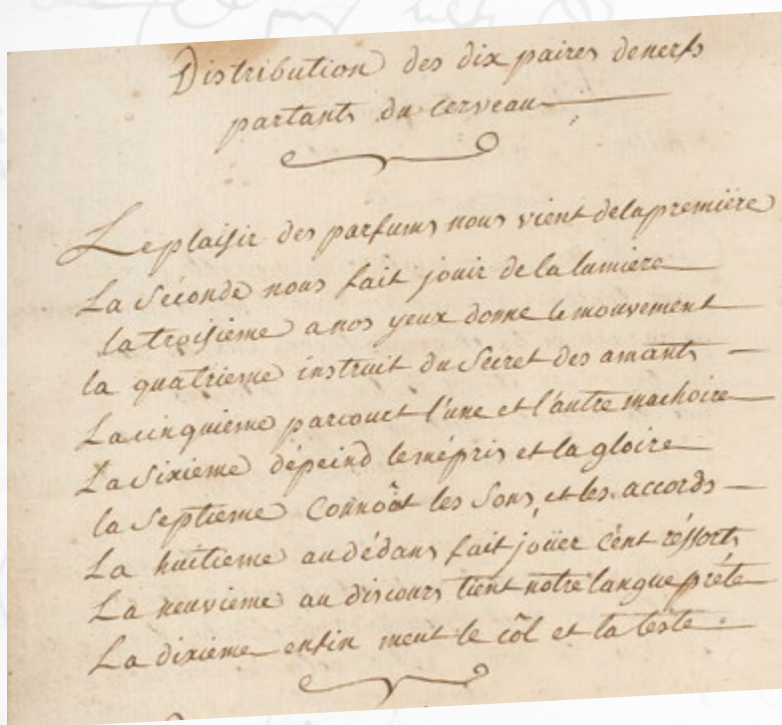 Distribution des dix paires de nerfs
partants du cerveau
Le plaisir des parfums nous vient de la premiere
La séconde nous fait jouir de la lumiere
la troisieme a nos yeux donne le mouvement
la quatrieme instruit du secret des amants
La cinquieme parcourt l'une et l'autre machoire
La sixieme dépeind le mépris et la gloire
la septieme connoât les sons, et les accords
La huitieme au dédans fait joüer cent réssorts
La neuvieme au discours tient notre langue préte
La dixieme enfin meut le côl et la teste.